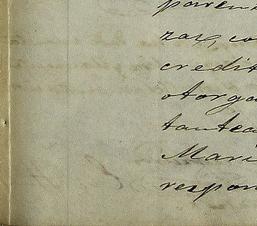 paren
zas, co
credit
otorga
tantea
Mari
respon